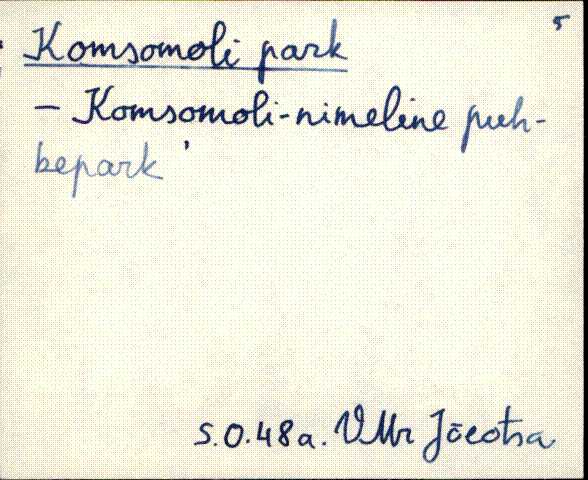 5
Komsomoli park
– Komsomoli-nimeline puh-
bepark'
S.O.48a. VMr Jõeotsa